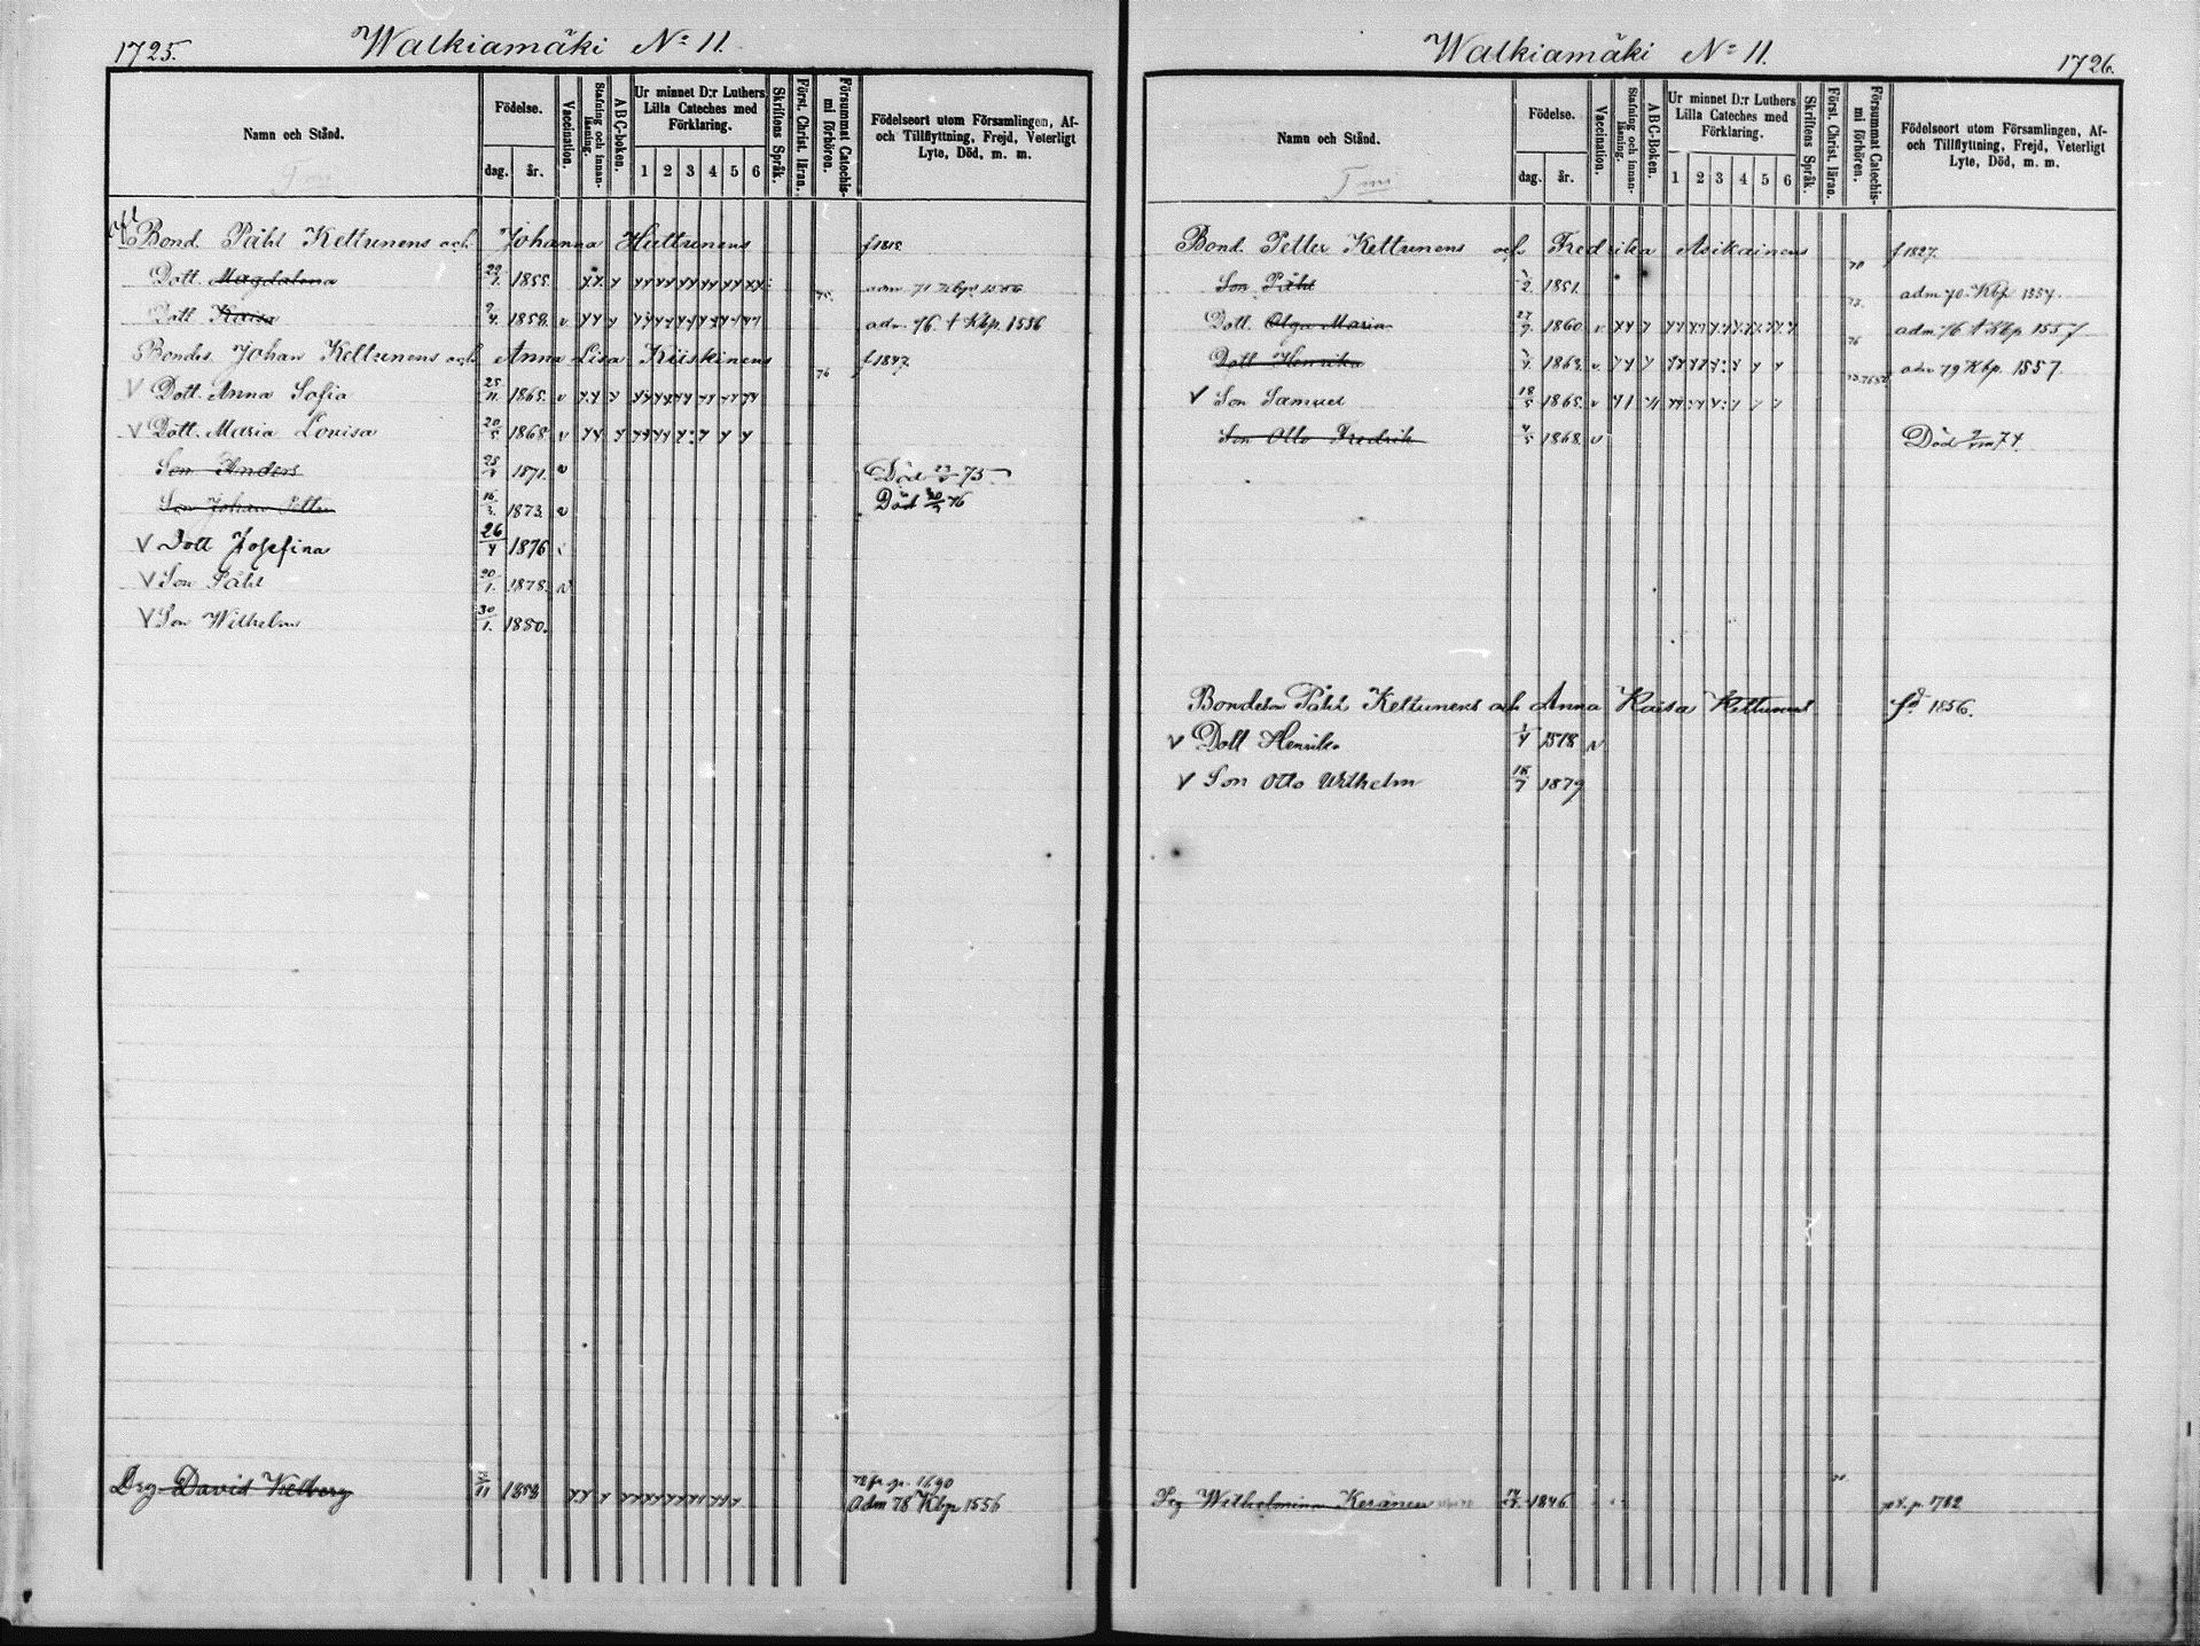 1725.
Walkiamäki No 11.
Namn och Stånd.
Födelse.
dag.
år.
Vaccination.
Stafning och innanläsning.
ABC-boken.
Ur minnet D:r Luthers Lilla Cateches med Förklaring.
1 2 3 4 5 6
Skriftens Språk.
Först. Christ. läran.
Försummat Catechismi förhören.
Födelseort utom Församlingen, Af- och Tillflyttning, Frejd, Veterligt Lyte, Död, m. m.
Bond. Påhl Kettunens och Johanna Huttunens
Dott. Magdalena 1855. 75.
Dott Kaisa 1858. v adm. 76. Kbp. 1556
Bonden Johan Kettunens och Anna Lisa Kiiskinens 76 f 1847.
V Dott. Anna Sofia 25/11. 1865. v
V Dött. Maria Lovisa 20/5 1868. v
Son Anders 1871. v Död 75
Son Johan Petter 16/3. 1873. v Död 76
V Dott Josefina 26/4 1876
V Son Påhl 1878.
V Son Wilhelm 30/1. 1880.
Drg David Kellberg 1858 adm 78 Kbp 1556
Walkiamäki No 11.
1726.
Namn och Stånd.
Födelse.
dag.
år.
Vaccination.
Stafning och innanläsning.
ABC-Boken.
Ur minnet D:r Luthers Lilla Cateches med Förklaring.
1 2 3 4 5 6
Skriftens Språk.
Först. Christ. läran.
Försummat Catechismi förhören.
Födelseort utom Församlingen, Af- och Tillflyttning, Frejd, Veterligt Lyte, Död, m. m.
Bond. Petter Kettunens och Fredrika Asikainens f 1827.
Son Påhl 1851. adm 70. Kbp
Dott. Olga Maria 1860. v 76 adm 76 Kbp 1557
Dott Henrika v adm 79 Kbp. 1557.
V Son Samuel 18/5 1865. v
Son Otto Fredrik 1868. v Död 74.
Bonden Påhl Kettunens och Anna Kaisa Kettunens fd 1856.
V Dott Henrika 1/4 1878
V Son Otto Wilhelm 1879
Pig Wilhelmina Keränen 1846 p. 1782